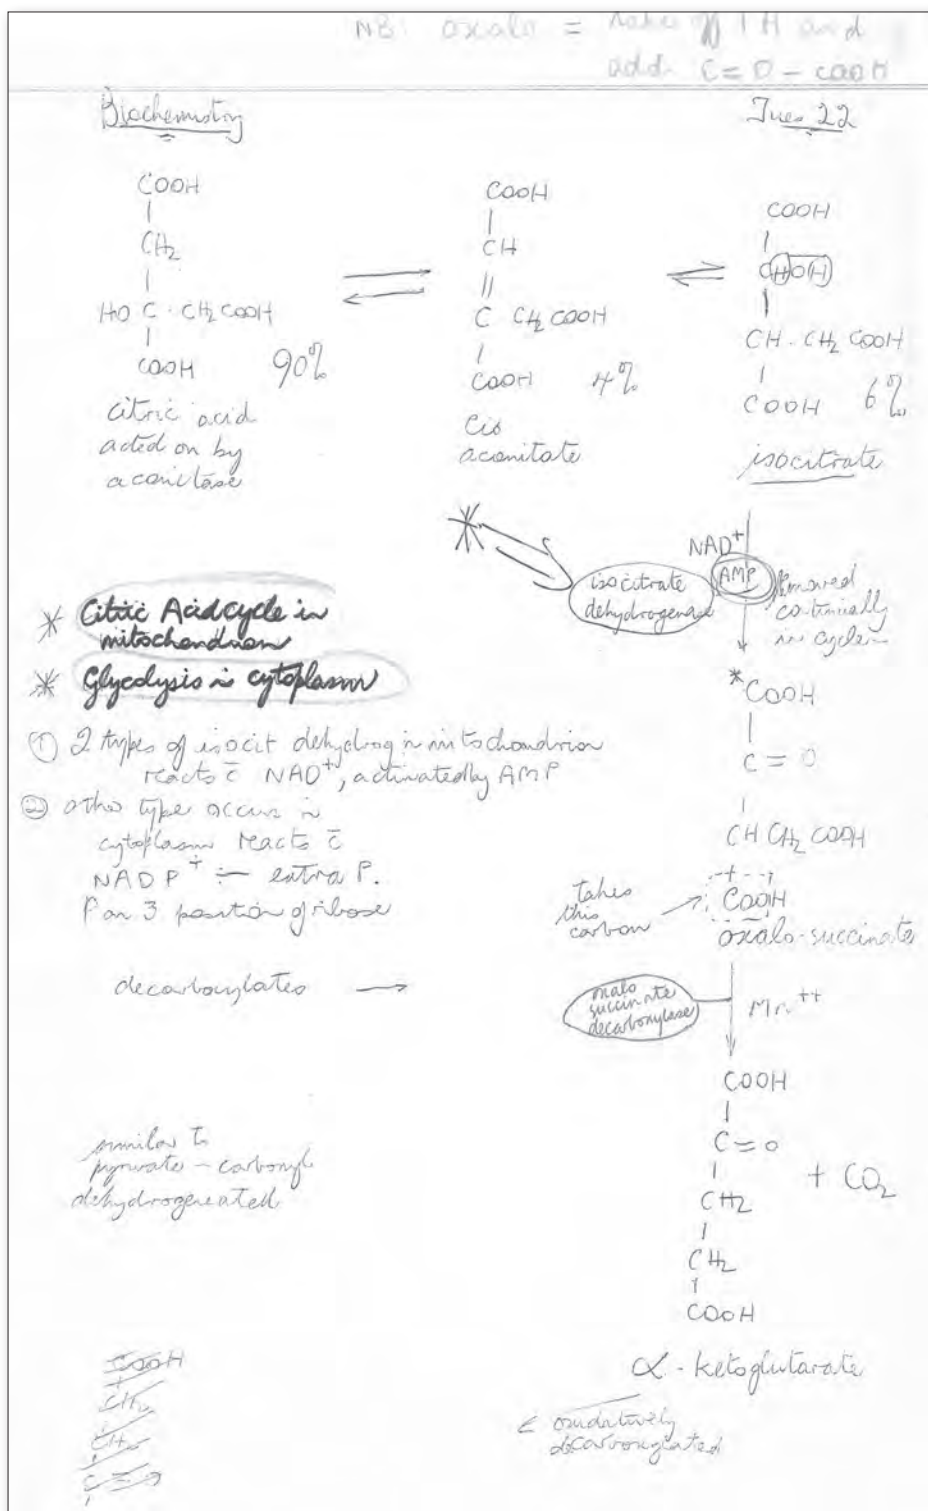 NB: oxalo = takes off 1 H and
add C=O - COOH
Biochemistry
Tues 22
COOH
|
CH2
|
HO C . CH2COOH
|
COOH 90%
citric acid
acted on by
aconitase
COOH
|
CH
||
C CH2COOH
|
COOH 4%
Cis
aconitate
COOH
|
CHOH
|
CH . CH2 COOH
|
COOH 6%
isocitrate
NAD+
isocitrate
dehydrogenase
AMP
removed
continually
in cycle
* Citric Acid cycle in
mitochondrion
* Glycolysis in cytoplasm
① 2 types of isocit dehydrog in mitochondrion
reacts c̄ NAD+, activated by AMP
② other type occurs in
cytoplasm reacts c̄
NADP+ — extra P.
P on 3 position of ribose
decarboxylates →
*COOH
|
C = O
|
CH CH2 COOH
|
COOH
takes
this
carbon
oxalo-succinate
oxalo
succinate
decarboxylase
Mn++
COOH
|
C = O
|
CH2
|
CH2
|
COOH
+ CO2
similar to
pyruvate - carbonyl
dehydrogenated
α - ketoglutarate
oxidatively
decarboxylated
COOH
|
CH2
|
CH2
|
C = O
|